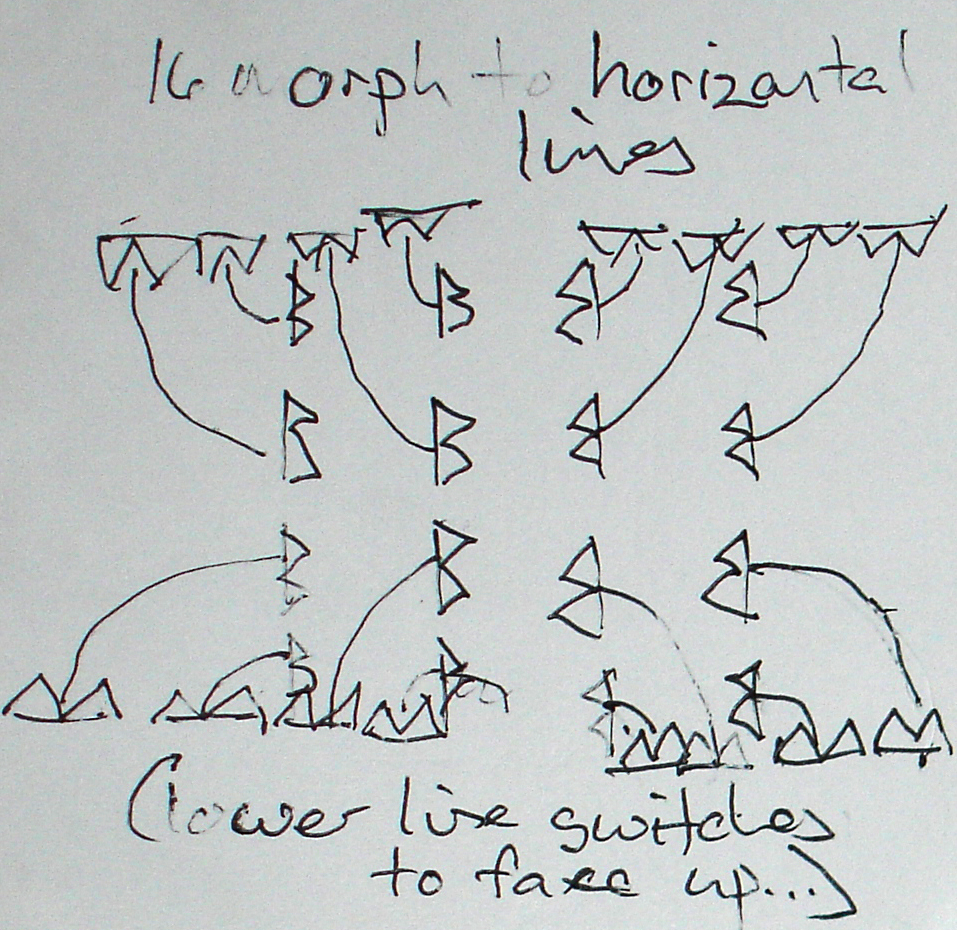 16 morph to horizontal
lines
(lower line switches
to face up...)